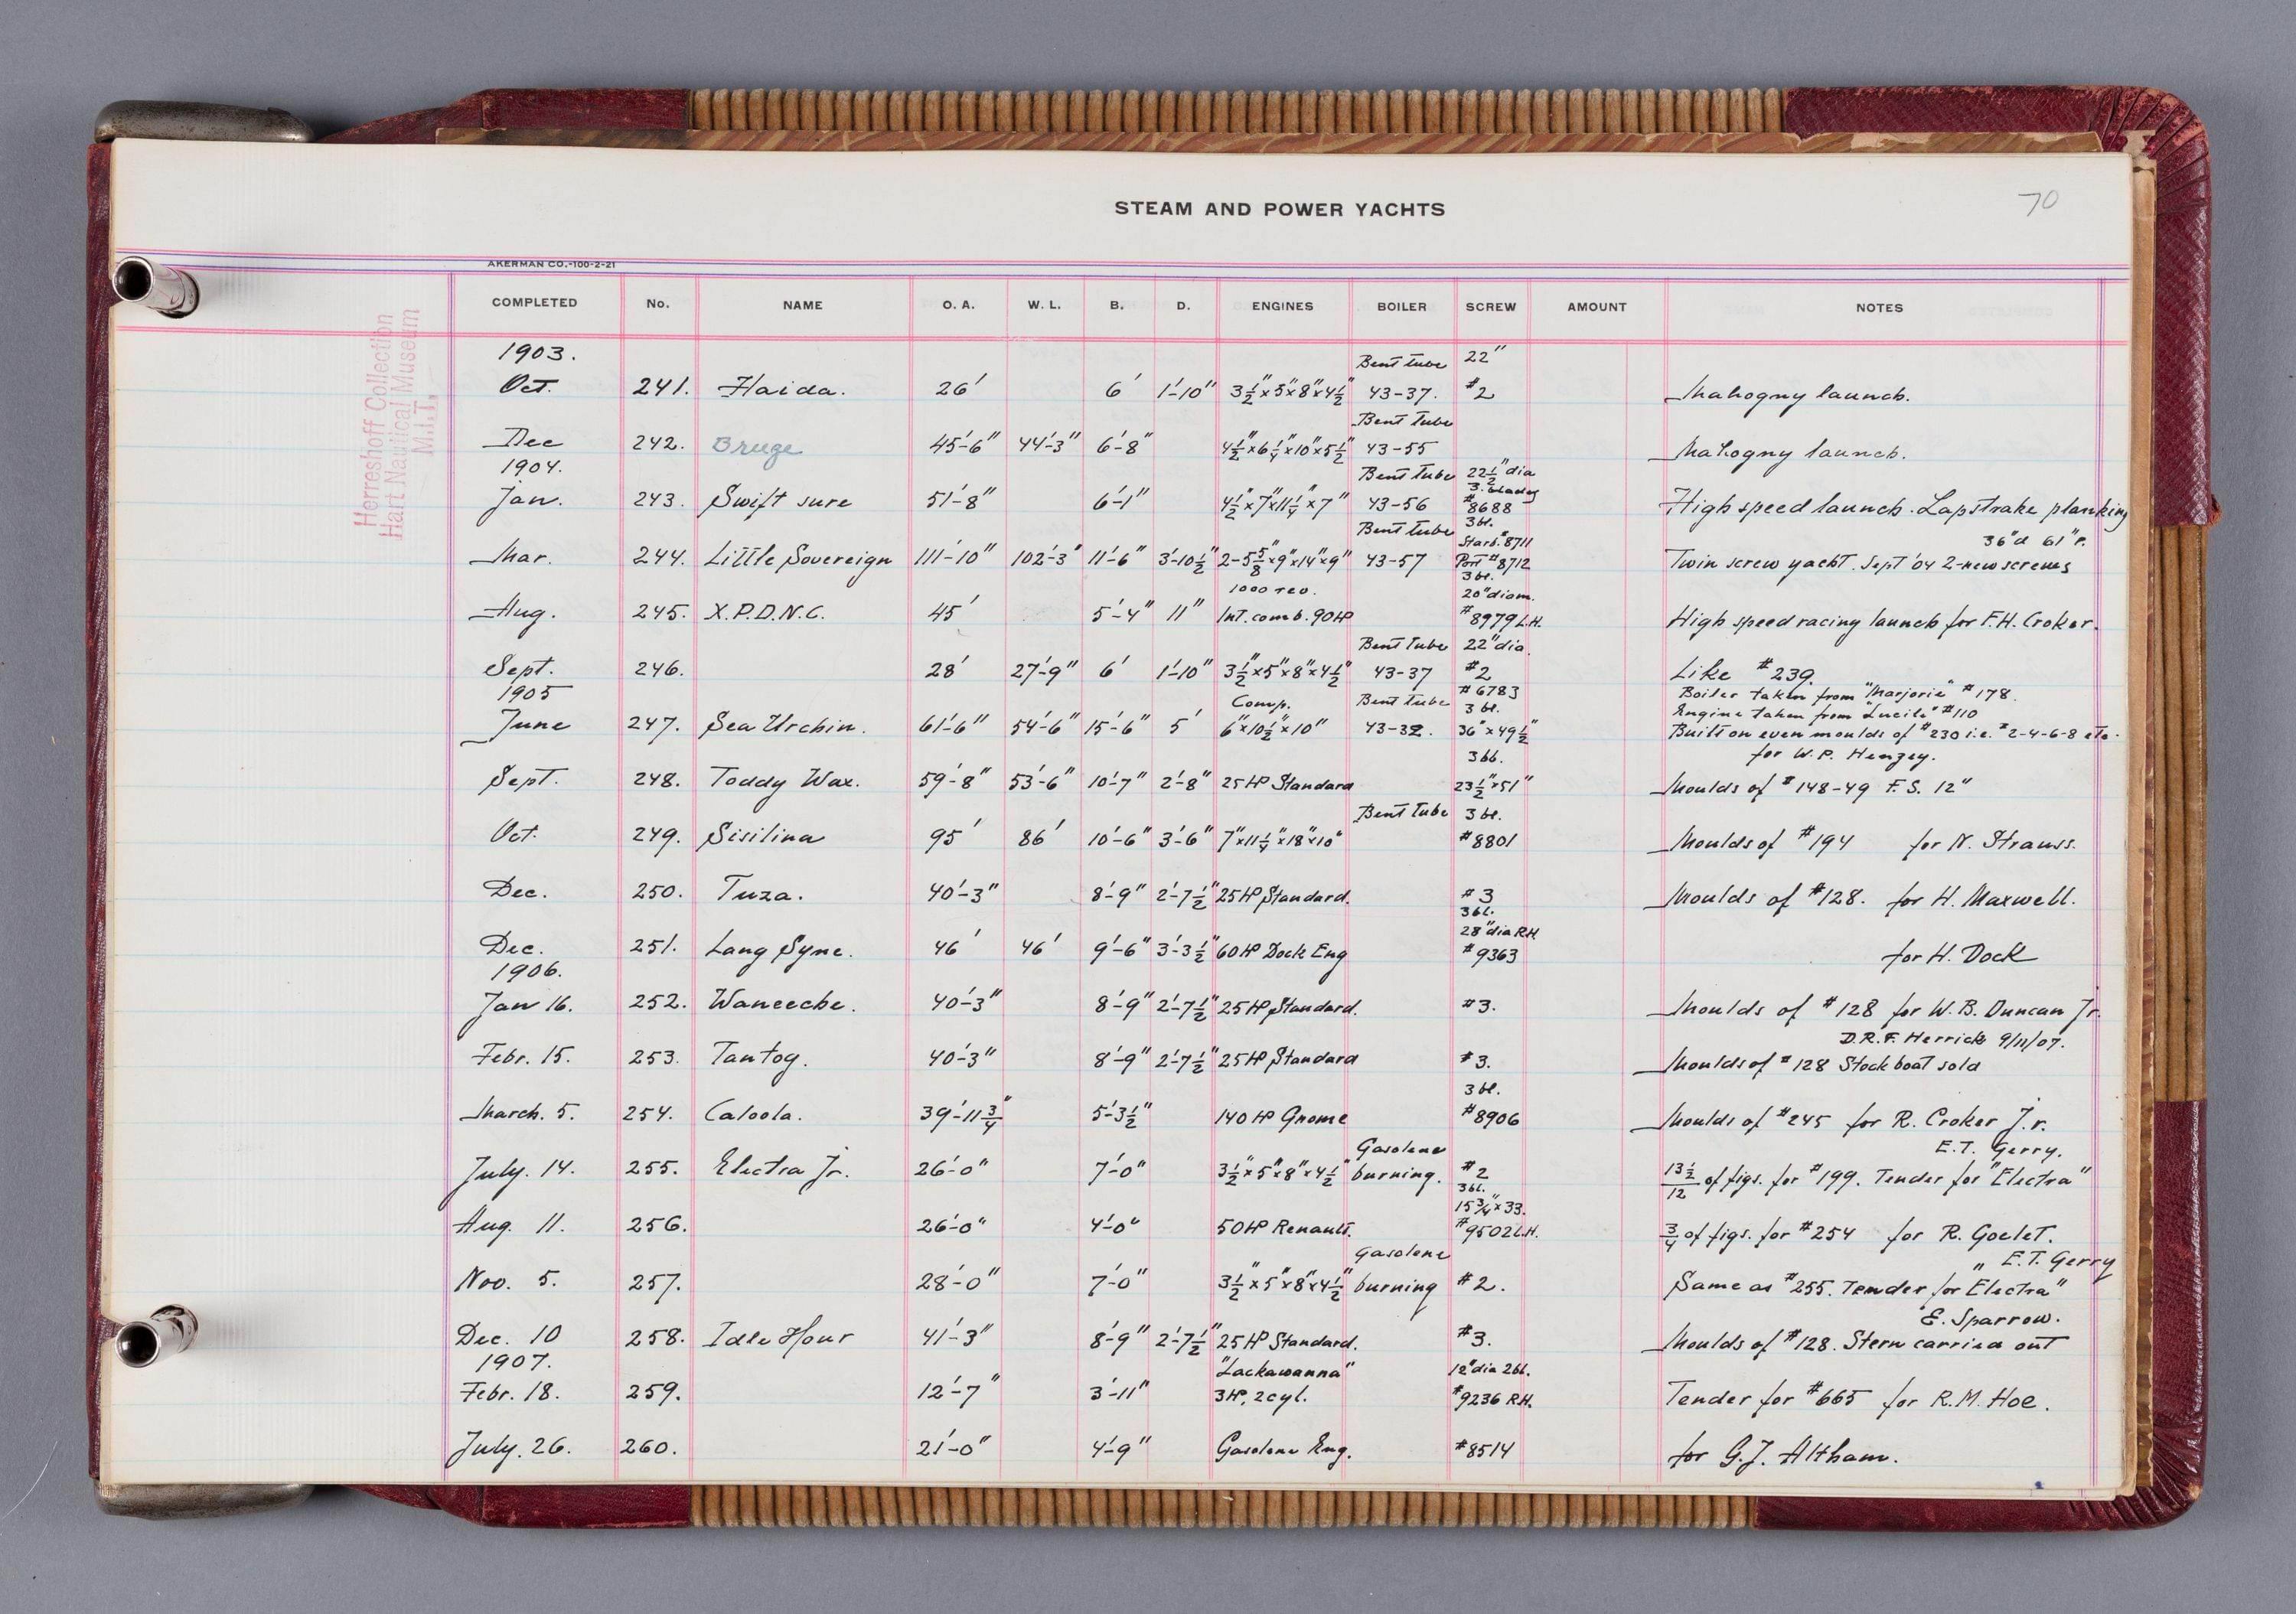 STEAM AND POWER YACHTS
70
AKERMAN CO.-100-2-21
COMPLETED No. NAME O. A. W. L. B. D. ENGINES BOILER SCREW AMOUNT NOTES
Herreshoff Collection
Hart Nautical Museum
M.I.T.
1903. Bent tube 22"
Oct. 241. Haida. 26' 6' 1'-10" 3½"x5"x8"x4½" 43-37. #2 Mahogny launch.
Bent tube
Dec 242. Bruge 45'-6" 44'-3" 6'-8" 4½"x6¼"x10"x5½" 43-55 Mahogny launch.
1904. Bent tube 22½" dia
3. blades
Jan. 243. Swift sure 51'-8" 6'-1" 4½"x7"x11¼"x7" 43-56 #8688 High speed launch. Lapstrake planking
3 bl.
Bent tube Starb. #8711 36"d 61"p.
Mar. 244. Little Sovereign 111'-10" 102'-3" 11'-6" 3'-10½" 2-5⅝"x9"x14"x9" 43-57 Port #8712 Twin screw yacht. Sept '04 2-new screws
3 bl.
1000 rev. 20" diam.
Aug. 245. X.P.D.N.C. 45' 5'-4" 11" Int. comb. 90 HP #8979 L.H. High speed racing launch for F.H. Croker.
Bent tube 22" dia.
Sept. 246. 28' 27'-9" 6' 1'-10" 3½"x5"x8"x4½" 43-37 #2 Like #239.
1905 #6783 Boiler taken from "Marjorie" #178.
Comp. Bent tube 3 bl. Engine taken from "Lucile" #110
June 247. Sea Urchin. 61'-6" 54'-6" 15'-6" 5' 6"x10½"x10" 43-32. 36"x49½" Built on even moulds of #230 i.e. #2-4-6-8 etc.
3 bl. for W.P. Henzey.
Sept. 248. Toddy Wax. 59'-8" 53'-6" 10'-7" 2'-8" 25 HP Standard 23½"x51" Moulds of #148-49 F.S. 12"
Bent tube 3 bl.
Oct. 249. Sisilina 95' 86' 10'-6" 3'-6" 7"x11¼"x18"x10" #8801 Moulds of #194 for N. Strauss.
Dec. 250. Tuza. 40'-3" 8'-9" 2'-7½" 25 HP Standard. #3 Moulds of #128. for H. Maxwell.
3 bl.
28" dia R.H.
Dec. 251. Lang Syne. 46' 46' 9'-6" 3'-3½" 60 HP Dock Eng #9363 for H. Dock
1906.
Jan 16. 252. Waneeche. 40'-3" 8'-9" 2'-7½" 25 HP Standard. #3. Moulds of #128 for W.B. Duncan Jr.
D.R.F. Herrick 9/11/07.
Febr. 15. 253. Tantog. 40'-3" 8'-9" 2'-7½" 25 HP Standard #3. Moulds of #128 Stock boat sold
3 bl.
March. 5. 254. Caloola. 39'-11¾" 5'-3½" 140 HP Gnome #8906 Moulds of #245 for R. Croker Jr.
Gasolene E.T. Gerry.
July. 14. 255. Electra Jr. 26'-0" 7'-0" 3½"x5"x8"x4½" burning. #2 13½/12 of figs. for #199. Tender for "Electra"
3 bl.
15¾"x33.
Aug. 11. 256. 26'-0" 4'-0" 50 HP Renault. #9502 L.H. ¾ of figs. for #254 for R. Goelet.
Gasolene E.T. Gerry
Nov. 5. 257. 28'-0" 7'-0" 3½"x5"x8"x4½" burning #2. Same as #255. Tender for "Electra"
E. Sparrow.
Dec. 10 258. Idle Hour 41'-3" 8'-9" 2'-7½" 25 HP Standard. #3. Moulds of #128. Stern carried out
1907. "Lackawanna" 12" dia 2bl.
Febr. 18. 259. 12'-7" 3'-11" 3 HP, 2 cyl. #9236 R.H. Tender for #665 for R.M. Hoe.
July. 26. 260. 21'-0" 4'-9" Gasolene Eng. #8514 for G.J. Altham.